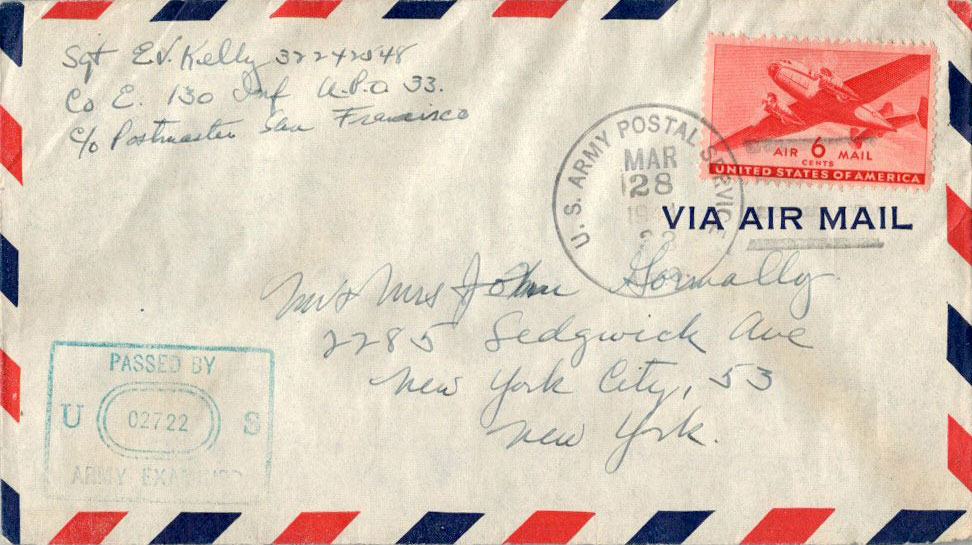 Sgt E.V. Kelly 32242548
Co E. 130 Inf A.P.O 33.
c/o Postmaster San Francisco
U.S. ARMY POSTAL SERVICE
MAR
28
AIR 6 MAIL
CENTS
UNITED STATES OF AMERICA
VIA AIR MAIL
Mr & Mrs John Gormally
2285 Sedgwick Ave
New York City, 53
New York.
PASSED BY
U 02722 S
ARMY EXAMINER